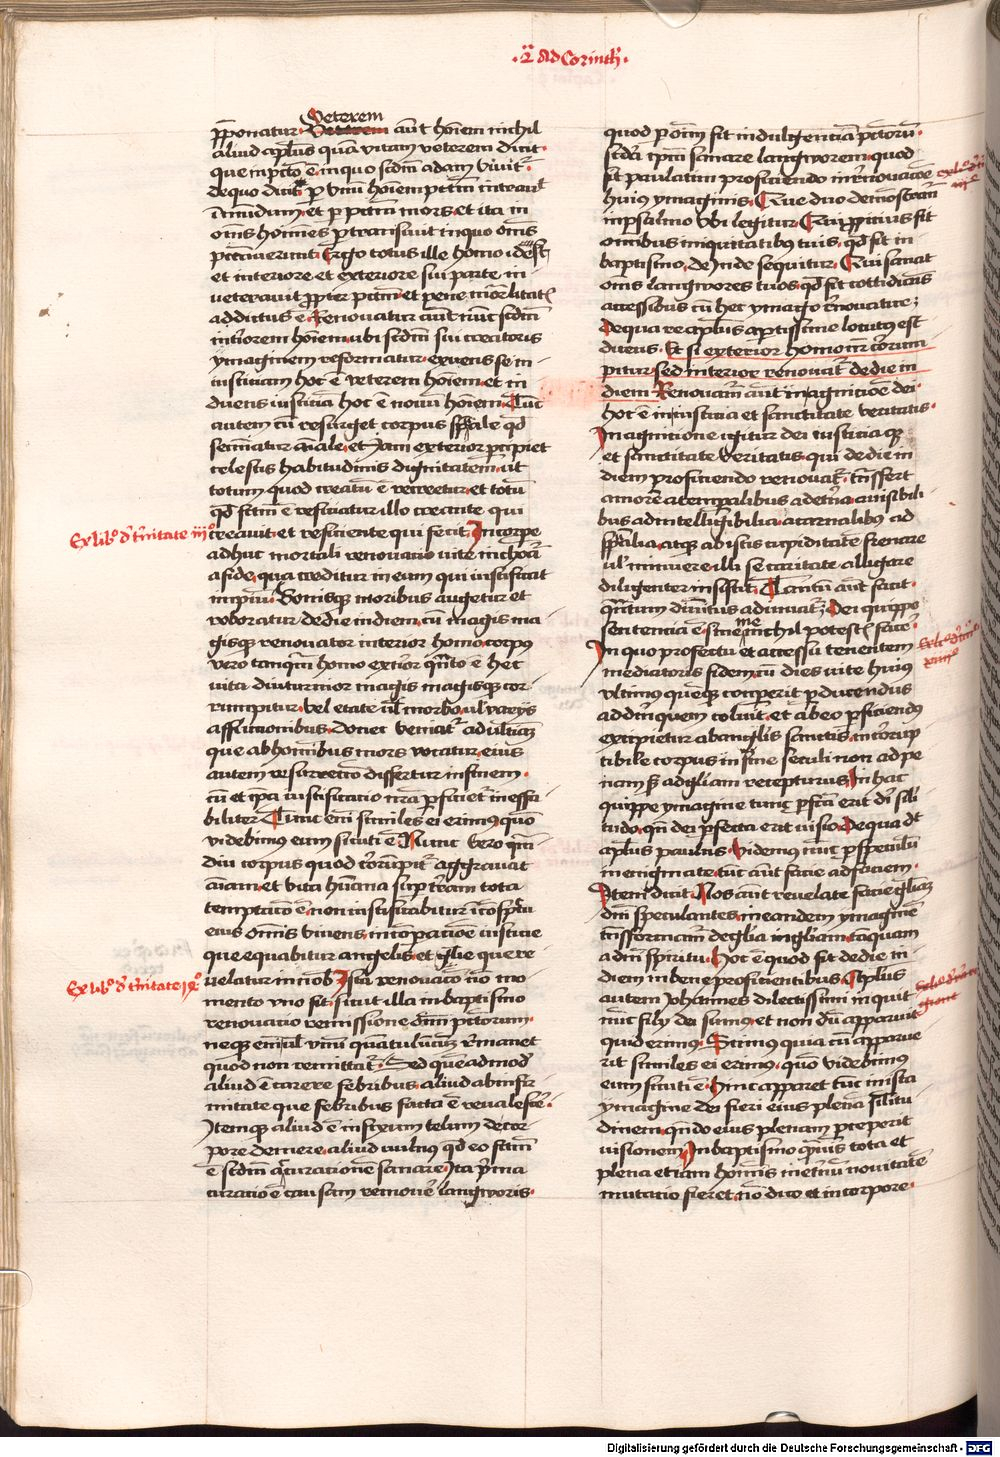 ·2̈ Ad Corinth̄·
Veterem
p̄ponatur· aūt hōiem nichil
aliud apl̄us quā vitam veterem dicit·
que in pctō ē· in quo scdm̄ adam viuit᷑·
de quo dicit· p̄ vnū hōiem pctm̄ intrauit
ī mūdum· et p pctm̄ mors· et ita in
om̄s hoīnes p transiuit in quo om̄s
pctauerunt· Ergo totus ille homo id est
et interiore et exteriore sui parte in-
veterauit p̄pter pctm̄· et pene mōrtalitat᷑
addictus ē· Renouatur aūt nūc scdm̄
intiorem hōiem· ubi scdm̄ sui creatoris
ymaginem reformatur· exuens se in-
iusticiam hoc ē veterem hōiem· et in
duens iusticiā hoc ē nouū hōiem· Tunc
autem cū resurget corpus spūale qd̄
semīatur aīale· et iam exterior pcipiet
celestis habitudinis dignitatem· ut
totum quod creatū ē recreetur· et totū
qd̄ fctm̄ ē reficiatur illo creante qui
creauit· et reficiente qui fecit· In corpe
adhuc mortali renouatio vite inchoat᷑
a fide· qua creditur in eum qui iustificat
impiū· Bonisq̨ moribus augetur et
roboratur de die in diem· cū magis ma
gisq̨ renouatur interior homo· corpus
vero tanq̄m homo extior qn̄to ē hec
vita diuturnior magis magisq̨ cor-
rumpitur· vel etate ul̄ morbo· ul̄ varijs
afflictionibus· donec veniat᷑ ad ultimā
que ab homībus mors vocatur· eius
autem resurrectio differtur in finem·
cū et ipa iustificatio nr̄a pficiet᷑ ineffa-
biliter· Tunc em̄ similes ei erimus· quō
videbimus eum sicuti ē· Nunc vero qm̄
diu corpus quod corrūpit᷑ aggrauat
aīam· et vita hūana sup trām tota
temptatio ē· non iustificabitur ī cōspctu
eius omnis viuens· in cōpatiōe iusticie
que equabitur angelis· et glīe que re
uelatur in nob̄· Ista renouatio nō mo-
mento vno fit· sicut illa in baptismo
renouatio remissione om̄m pctōrum·
neq̨ em̄ ul̄ vnū quātulūcūq̨ remanet
quod non remittat᷑· Sed quēadmodū
aliud ē carere febribus· aliud ab infir-
mitate que febribus facta ē reualesc̄e·
Itemq̨ aliud ē infixum telum de cor-
pore demere· aliud vulnus qd̄ eo fctm̄
ē scdm̄ curatione sanare· Ita prima
curatio ē causam remoue᷑ langworis·
Ex libº de trinitate iiijº
Ex libº de trinitate ixº
quod p oīm fit indulgentiā pctōrū·
scda ipm̄ sanare langworem· quod
fit paulatim proficiendo in renouatiōe
huius ymaginis· Que duo demōstrant᷑
in psalmo vbi legitur· Qui ppicius fit
omībus iniquitatibus tuis· qd̄ fit in
baptismo· deinde sequitur· Qui sanat
om̄s langwores tuos· qd̄ fit cottidianis
accessibus cū hec ymago renouatur;
de qua re apl̄us aptissime locutus est
dicens· Et si exterior homo nr̄ corrum
pitur· sed interior renouat᷑ de die in
diem· Renouat᷑ aūt in agnitiōe dei·
hoc ē in iusticia et sanctitate veritatis·
In agnitione igitur dei iusticiaq̨
et sanctitate veritatis· qui de die in
diem proficiendo renouat᷑· trāsfert
amorē a tempalibus ad eterna· a visibili-
bus ad intelligibilia· a carnalibus ad
spūalia· atq̨ ab istis cupiditatē frenare
ul̄ minuere· illi se caritate alligare
diligenter insistit· Tantū aūt facit·
qn̄tum diuītus adiuuat᷑; Dei quippe
sententia ē· sine me nichil potestis face᷑·
In quo profectu et accessu tenentem
mediatoris fidem· cū dies vite huius
vltimus quēq̨ compererit pducendus
ad dm̄ quem coluit· et ab eo pficiendus
excipietur ab anglīs sanctis· incorup
tibile corpus in fine seculi non ad pe
nam sꝫ ad gl̄iam recepturus· In hac
quippe ymagine tunc pfcā erit dī sīli
tudo· qn̄ dei pfecta erit uisio· De qua dt̄
apl̄us paulus· Videmus nūc p speculū
in enigmate· tūc aūt facie ad faciem·
Item dicit· Nos aūt reuelate facie glīam
dn̄i speculantes· in eandem ymaginē
trāsformam᷑ de glīa in glīam· tāquam
a dn̄i spiritu· Hoc ē quod fit de die in
diem in bene proficientibus· Apl̄us
autem Johannes dilectissimi inquit
nūc filij dei sumus· et non dū apparuit
quid erimus· Scimus quia cū apparue
rit similes ei erimus· quō videbimus
eum sicuti ē· Hinc apparet tūc in ista
ymagine dei fieri eius plenā silitu
dinem· qn̄do eius plenam pceperit
visionem· In baptismo quāuis tota et
plena etiam homīs in etnū nouitate
mutatio fieret· nō dico et in corpore·